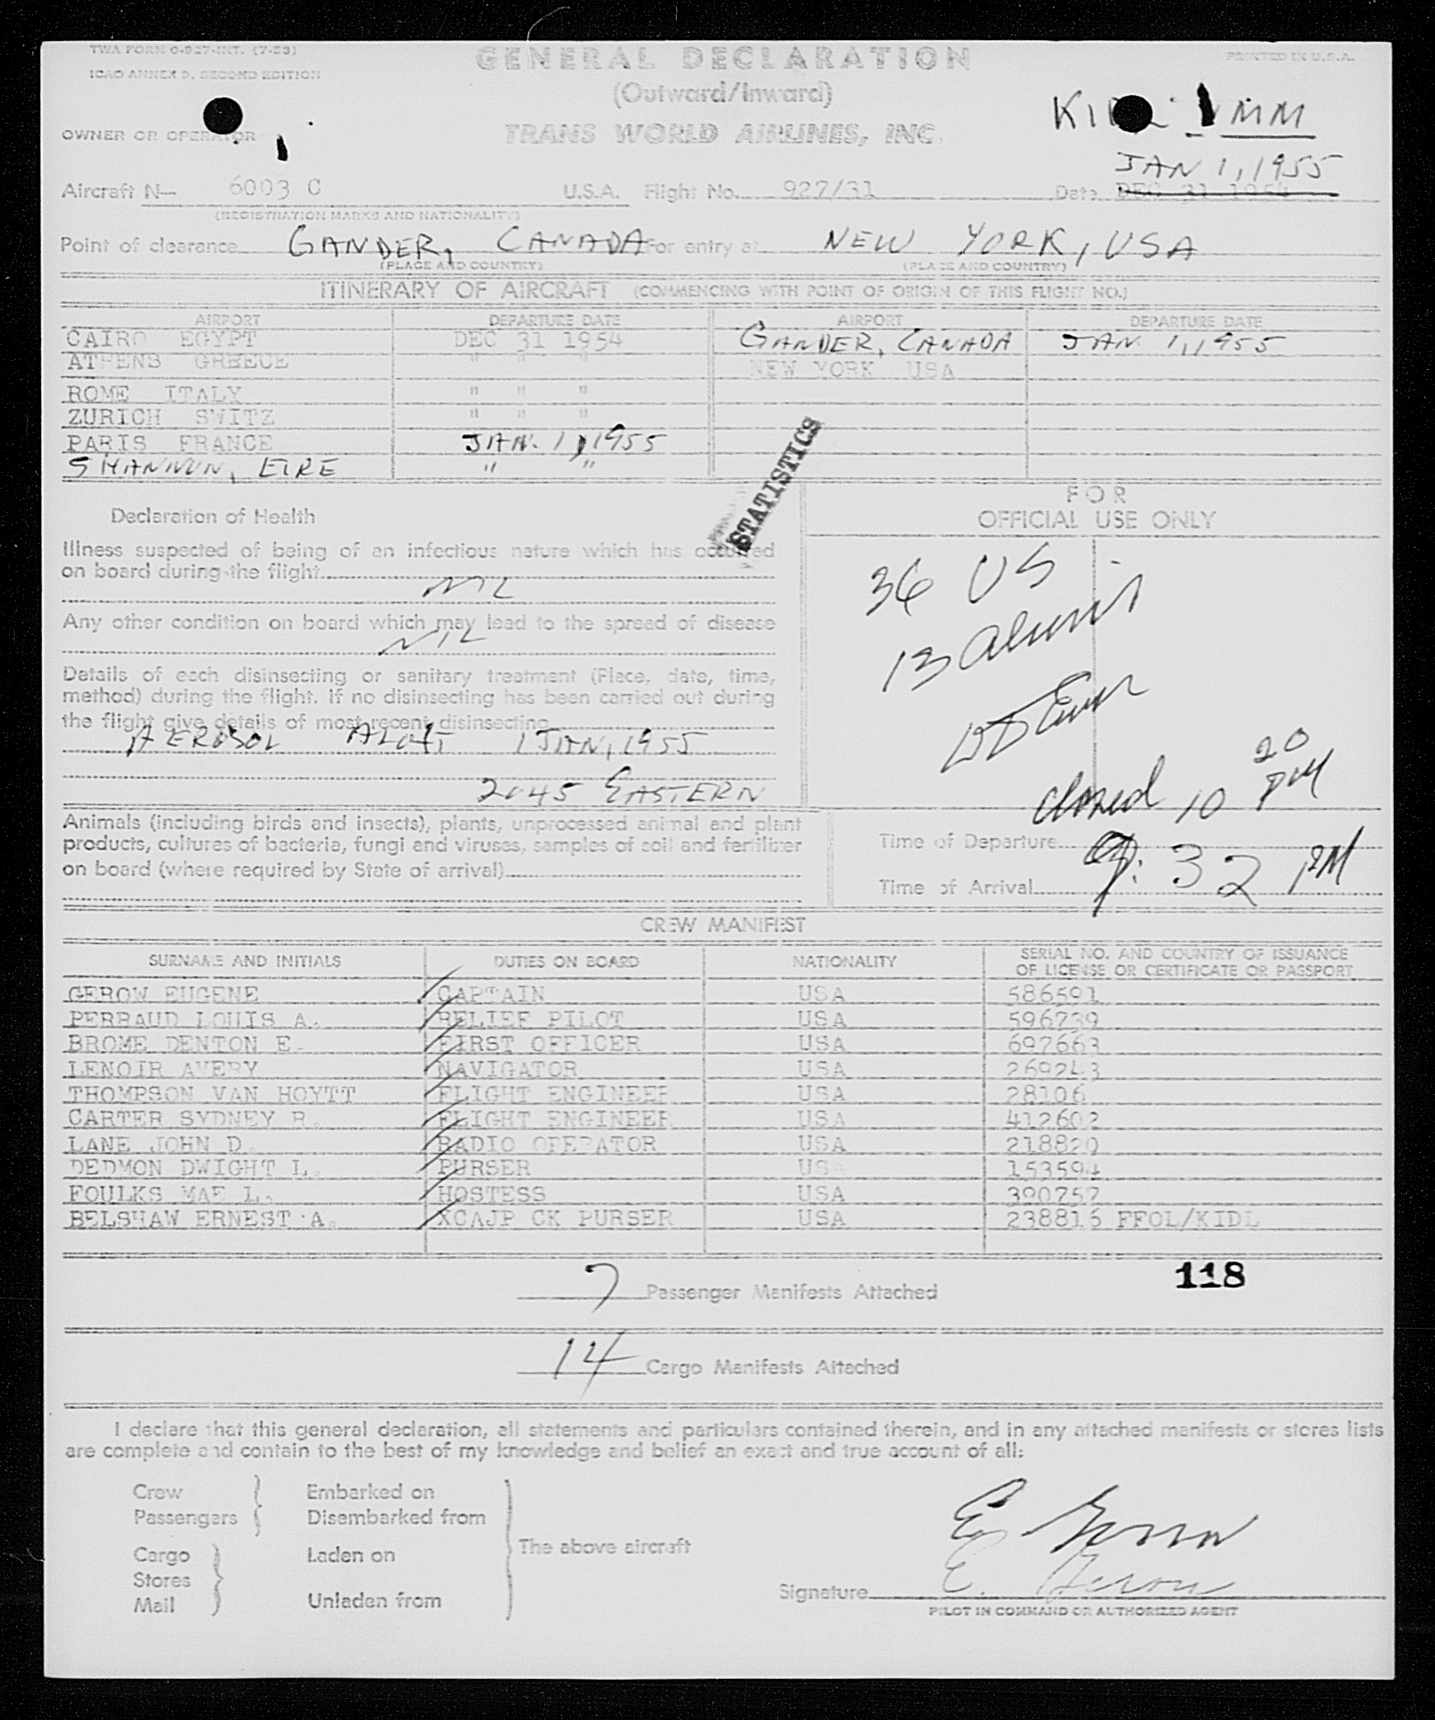 TWA FORM O-927-INT. (7-53)
ICAO ANNEX 9, SECOND EDITION
GENERAL DECLARATION
PRINTED IN U.S.A.
(Outward/Inward)
OWNER OR OPERATOR
TRANS WORLD AIRLINES, INC.
JAN 1, 1955
Aircraft N— 6003 C U.S.A. Flight No. 927/31 Date DEC 31 1954
(REGISTRATION MARKS AND NATIONALITY)
Point of clearance GANDER, CANADA For entry at NEW YORK, USA
(PLACE AND COUNTRY) (PLACE AND COUNTRY)
ITINERARY OF AIRCRAFT (COMMENCING WITH POINT OF ORIGIN OF THIS FLIGHT NO.)
AIRPORT DEPARTURE DATE AIRPORT DEPARTURE DATE
CAIRO EGYPT DEC 31 1954 GANDER, CANADA JAN 1, 1955
ATHENS GREECE " " " NEW YORK USA
ROME ITALY " " "
ZURICH SWITZ " " "
PARIS FRANCE JAN. 1, 1955
SHANNON, EIRE " "
STATISTICS
FOR
OFFICIAL USE ONLY
Declaration of Health
Illness suspected of being of an infectious nature which has occurred
on board during the flight
NIL
Any other condition on board which may lead to the spread of disease
NIL
Details of each disinsecting or sanitary treatment (Place, date, time,
method) during the flight. If no disinsecting has been carried out during
the flight give details of most recent disinsecting
AEROSOL ALOFT 1 JAN, 1955
2045 EASTERN
36 US
13 aliens
closed 10 20 PM
Animals (including birds and insects), plants, unprocessed animal and plant
products, cultures of bacteria, fungi and viruses, samples of soil and fertilizer
on board (where required by State of arrival)
Time of Departure
Time of Arrival 9:32 PM
CREW MANIFEST
SURNAME AND INITIALS DUTIES ON BOARD NATIONALITY SERIAL NO. AND COUNTRY OF ISSUANCE
OF LICENSE OR CERTIFICATE OR PASSPORT
GEROW EUGENE CAPTAIN USA 586591
PERRAUD LOUIS A. RELIEF PILOT USA 596739
BROME DENTON E. FIRST OFFICER USA 697663
LENOIR AVERY NAVIGATOR USA 269243
THOMPSON VAN HOYTT FLIGHT ENGINEER USA 28106
CARTER SYDNEY R. FLIGHT ENGINEER USA 412602
LANE JOHN D. RADIO OPERATOR USA 218820
DEDMON DWIGHT L. PURSER USA 153594
FOULKS MAE L. HOSTESS USA 390757
BELSHAW ERNEST A. XCAJP CK PURSER USA 238816 FFOL/KIDL
118
7 Passenger Manifests Attached
14 Cargo Manifests Attached
I declare that this general declaration, all statements and particulars contained therein, and in any attached manifests or stores lists
are complete and contain to the best of my knowledge and belief an exact and true account of all:
Crew
Passengers
Embarked on
Disembarked from
Cargo
Stores
Mail
Laden on
Unladen from
The above aircraft
E. Gerow
Signature E. Gerow
PILOT IN COMMAND OR AUTHORIZED AGENT